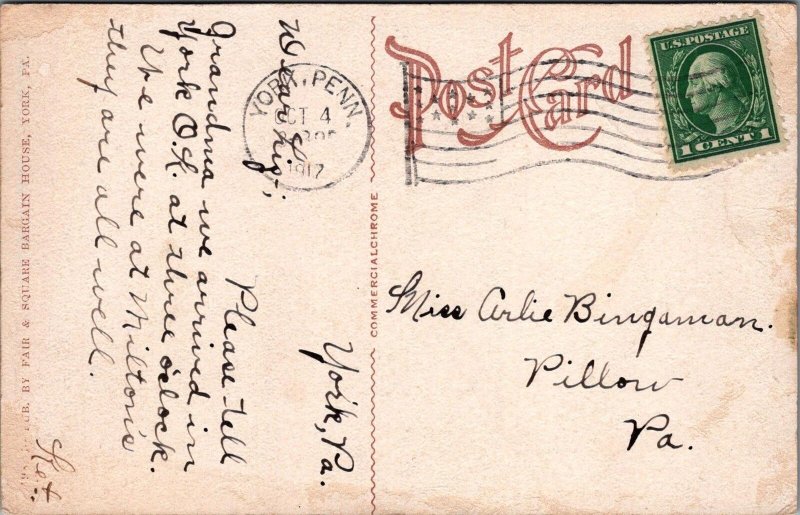 Post Card
U.S. POSTAGE
1 CENT 1
YORK, PENN.
OCT 4
1917
York, Pa.
Dear Sis;
Please tell
Grandma we arrived in
York O.K. at three o'clock.
We were at Milton's
they are all well.
COMMERCIALCHROME
PUB. BY FAIR & SQUARE BARGAIN HOUSE, YORK, PA.
Miss Arlie Bingaman.
Pillow
Pa.